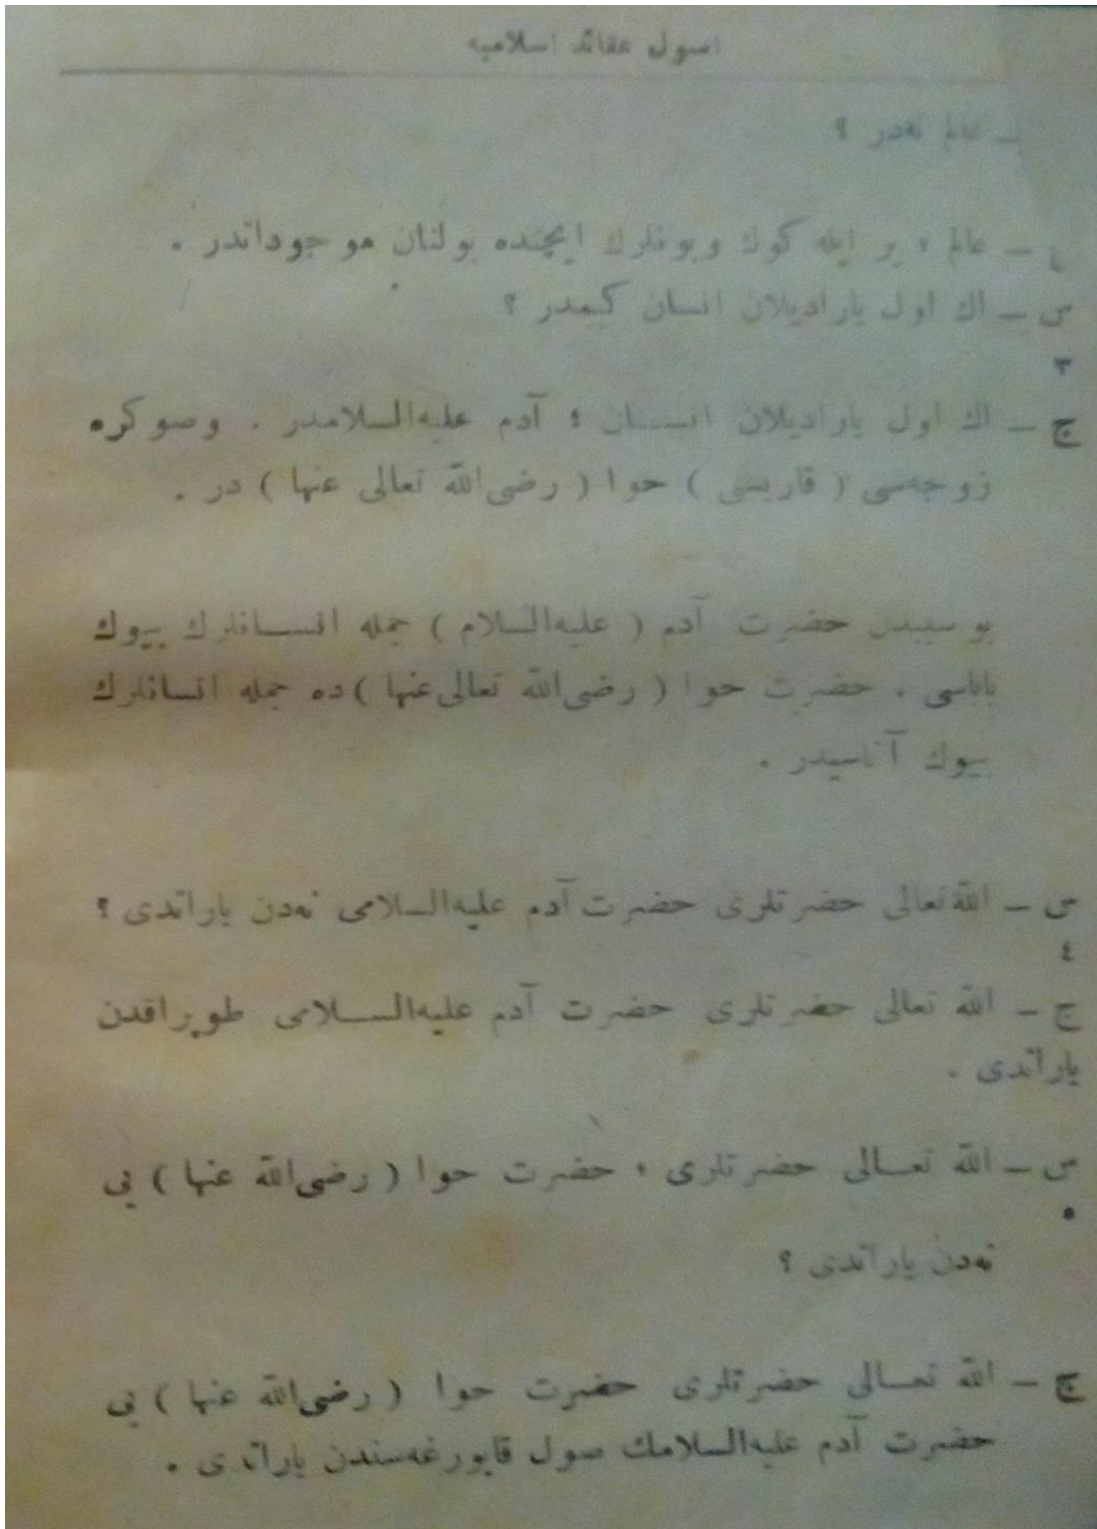 اصول عقائد اسلاميه
ــ عالم نه‌در ؟
ــ عالم ؛ ير ايله كوك وبونلرك ايچنده بولنان موجوداتدر .
س ــ اك اول ياراديلان انسان كيمدر ؟
٣
ج ــ اك اول ياراديلان انســان ؛ آدم عليه‌السلامدر . وصوكره
زوجه‌سى ( قاريسى ) حوا ( رضى‌الله تعالى عنها ) در .
بو سببدن حضرت آدم ( عليه‌السلام ) جمله انســانلرك بيوك
باباسى . حضرت حوا ( رضى‌الله تعالى‌عنها ) ده جمله انسانلرك
بيوك آناسيدر .
س ــ الله‌تعالى حضرتلرى حضرت آدم عليه‌السلامى نه‌دن ياراتدى ؟
٤
ج ــ الله تعالى حضرتلرى حضرت آدم عليه‌الســلامى طوپراقدن
ياراتدى .
س ــ الله تعــالى حضرتلرى ، حضرت حوا ( رضى‌الله عنها ) يى
٥
نه‌دن ياراتدى ؟
ج ــ الله تعــالى حضرتلرى حضرت حوا ( رضى‌الله عنها ) يى
حضرت آدم عليه‌السلامك صول قابورغه‌سندن ياراتدى .